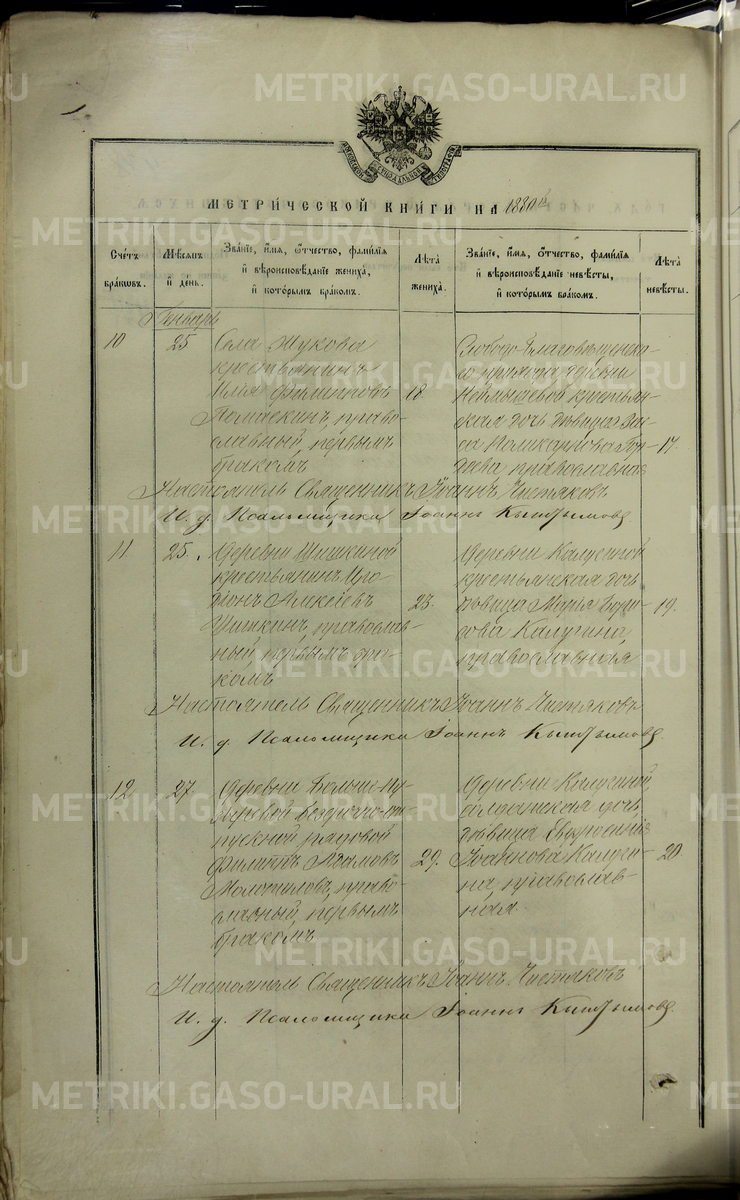 METRIKI.GASO-URAL.RU
МЕТРИ́ЧЕСКОЙ КНИ́ГИ НА 1880й
Сче́тъ бра́кѡвъ.
Мѣ́сяцъ и҆ день.
Зва́нїе, и҆́мя, ѻ҆́тчество, фами́лїя и҆ вѣроисповѣ́данїе жениха̀, и҆ кото́рымъ бра́комъ.
Лѣ́та жениха̀.
Зва́нїе, и҆́мя, ѻ҆́тчество, фами́лїя и҆ вѣроисповѣ́данїе невѣ́сты, и҆ кото́рымъ бра́комъ.
Лѣ́та невѣ́сты.
Январь
10
25
Села Жукова
крестьянинъ
Илія Филиповъ
православный, первымъ
бракомъ
18
Слободо-Благовѣщенска-
го прихода деревни
крестьян-
ская дочь дѣвица
Поликарпова
православная
17.
Настоятель Священникъ Іоаннъ Чистяковъ
И. д. Псаломщика Іоаннъ Кыштымовъ
11
25.
Деревни Шишкиной
крестьянинъ Иро-
діонъ Алексѣевъ
Шишкинъ, православ-
ный, первымъ бра-
комъ
23.
Деревни Калугиной
крестьянская дочь
дѣвица Марія
Калугина,
православная
19.
Настоятель Священникъ Іоаннъ Чистяковъ
И. д. Псаломщика Іоаннъ Кыштымовъ.
12
27
Деревни Больше-
безсрочно-от-
пускной рядовой
Филиппъ Адамовъ
Молотиловъ, право-
славный, первымъ
бракомъ
29.
Деревни Калугиной,
солдатская дочь
дѣвица Евфросинія
Іоаннова Калуги-
на, православ-
ная.
20
Настоятель Священникъ Іоаннъ Чистяковъ
И. д. Псаломщика Іоаннъ Кыштымовъ.